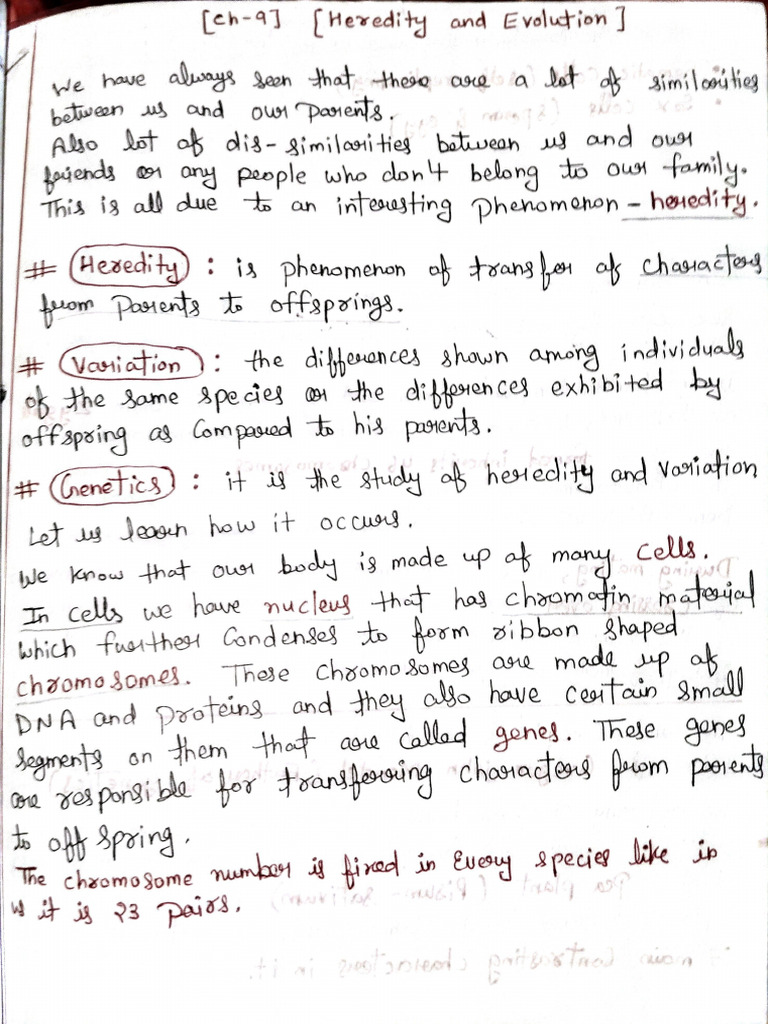 [Ch-9] [Heredity and Evolution]
We have always seen that there are a lot of similarities
between us and our Parents.
Also lot of dis-similarities between us and our
friends or any people who don't belong to our family.
This is all due to an interesting phenomenon - heredity.
# Heredity : is phenomenon of transfer of characters
from Parents to offsprings.
# Variation : the differences shown among individuals
of the same species or the differences exhibited by
offspring as Compared to his parents.
# Genetics : it is the study of heredity and variation
Let us learn how it occurs.
We know that our body is made up of many cells.
In cells we have nucleus that has chromatin material
which further Condenses to form ribbon shaped
chromosomes. These chromosomes are made up of
DNA and proteins and they also have certain small
segments on them that are called genes. These genes
are responsible for transferring characters from parents
to off spring.
The chromosome number is fixed in Every species like in
us it is 23 pairs.